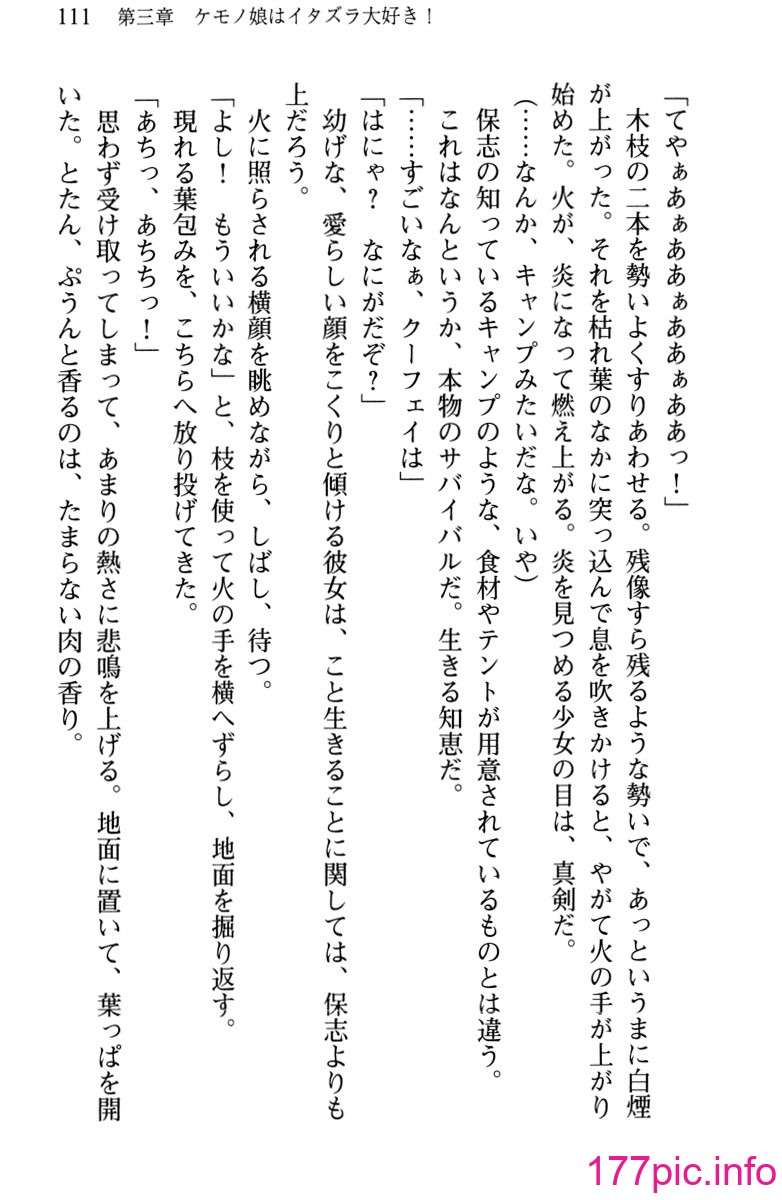 111　第三章　ケモノ娘はイタズラ大好き！
「てやぁあぁああぁああぁああっ！」
　木枝の二本を勢いよくすりあわせる。残像すら残るような勢いで、あっというまに白煙
が上がった。それを枯れ葉のなかに突っ込んで息を吹きかけると、やがて火の手が上がり
始めた。火が、炎になって燃え上がる。炎を見つめる少女の目は、真剣だ。
（……なんか、キャンプみたいだな。いや）
　保志の知っているキャンプのような、食材やテントが用意されているものとは違う。
　これはなんというか、本物のサバイバルだ。生きる知恵だ。
「……すごいなぁ、クーフェイは」
「はにゃ？　なにがだぞ？」
　幼げな、愛らしい顔をこくりと傾ける彼女は、こと生きることに関しては、保志よりも
上だろう。
　火に照らされる横顔を眺めながら、しばし、待つ。
「よし！　もういいかな」と、枝を使って火の手を横へずらし、地面を掘り返す。
　現れる葉包みを、こちらへ放り投げてきた。
「あちっ、あちちっ！」
　思わず受け取ってしまって、あまりの熱さに悲鳴を上げる。地面に置いて、葉っぱを開
いた。とたん、ぷうんと香るのは、たまらない肉の香り。
177pic.info